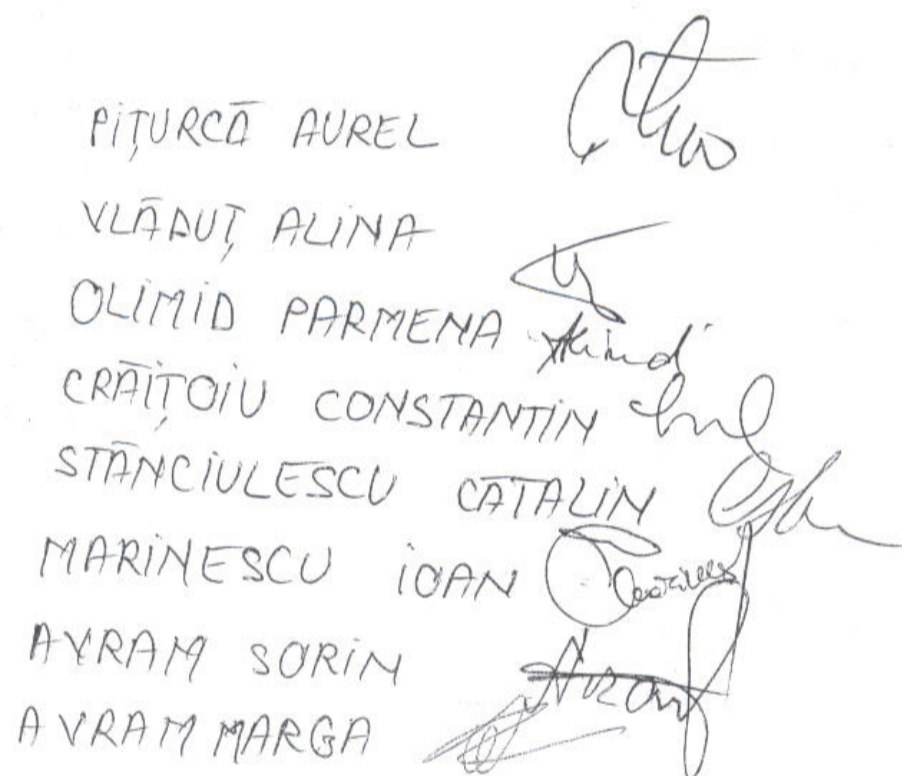 PIȚURCĂ AUREL
VLĂDUȚ ALINA
OLIMID PARMENA
CRĂIȚOIU CONSTANTIN
STĂNCIULESCU CĂTALIN
MARINESCU IOAN
AVRAM SORIN
AVRAM MARGA